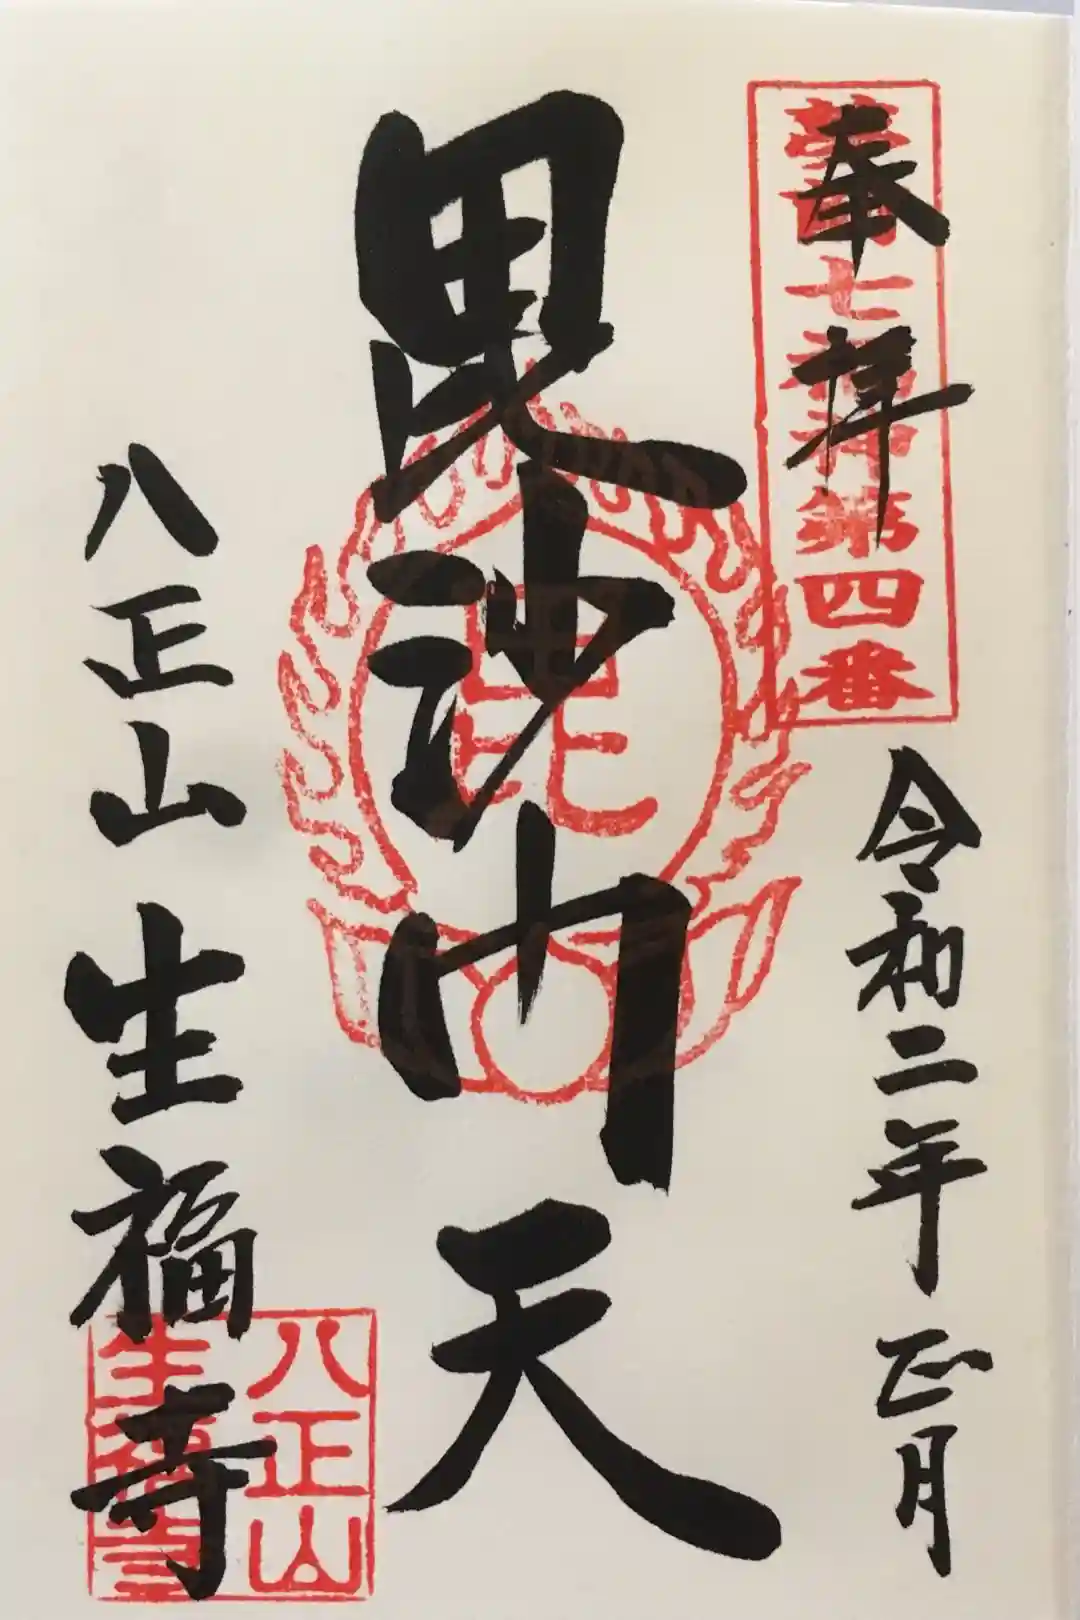 奉拝
七福神第四番
令和二年正月
毘沙門天
毘
八正山 生福寺
八正山
生福寺